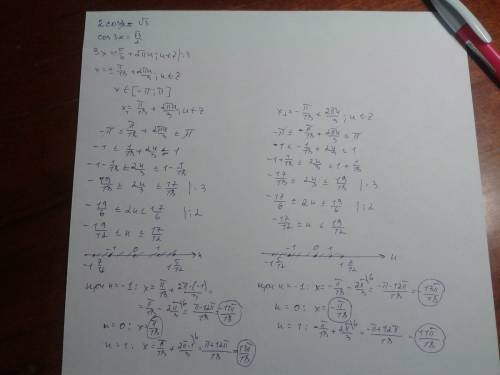 2 cos3x = √3
cos 3x = √3/2
3x = ± π/6 + 2πn; n∈Z |:3
x = ± π/18 + 2πn/3; n∈Z
x ∈ [-π; π]
x₁ = π/18 + 2πn/3; n∈Z
-π ≤ π/18 + 2πn/3 ≤ π
-1 ≤ 1/18 + 2n/3 ≤ 1
-1 - 1/18 ≤ 2n/3 ≤ 1 - 1/18
-19/18 ≤ 2n/3 ≤ 17/18 |·3
-19/6 ≤ 2n ≤ 17/6 |:2
-19/12 ≤ n ≤ 17/12
-1 7/12 -1 0 1 1 5/12 n
при n = -1: x = π/18 + 2π·(-1)/3 =
= π/18 - 2π/3 = π-12π/18 = -11π/18
n = 0: x = π/18
n = 1: x = π/18 + 2π·1/3 = π+12π/18 = 13π/18
x₁ = -π/18 + 2πn/3; n∈Z
-π ≤ -π/18 + 2πn/3 ≤ π
-1 ≤ -1/18 + 2n/3 ≤ 1
-1 + 1/18 ≤ 2n/3 ≤ 1 + 1/18
-17/18 ≤ 2n/3 ≤ 19/18 |·3
-17/6 ≤ 2n ≤ 19/6 |:2
-17/12 ≤ n ≤ 19/12
-1 5/12 -1 0 1 1 7/12 n
при n = -1: x = -π/18 - 2π/3 = -π-12π/18 = -13π/18
n = 0: x = -π/18
n = 1: -π/18 + 2π/3 = -π+12π/18 = 11π/18